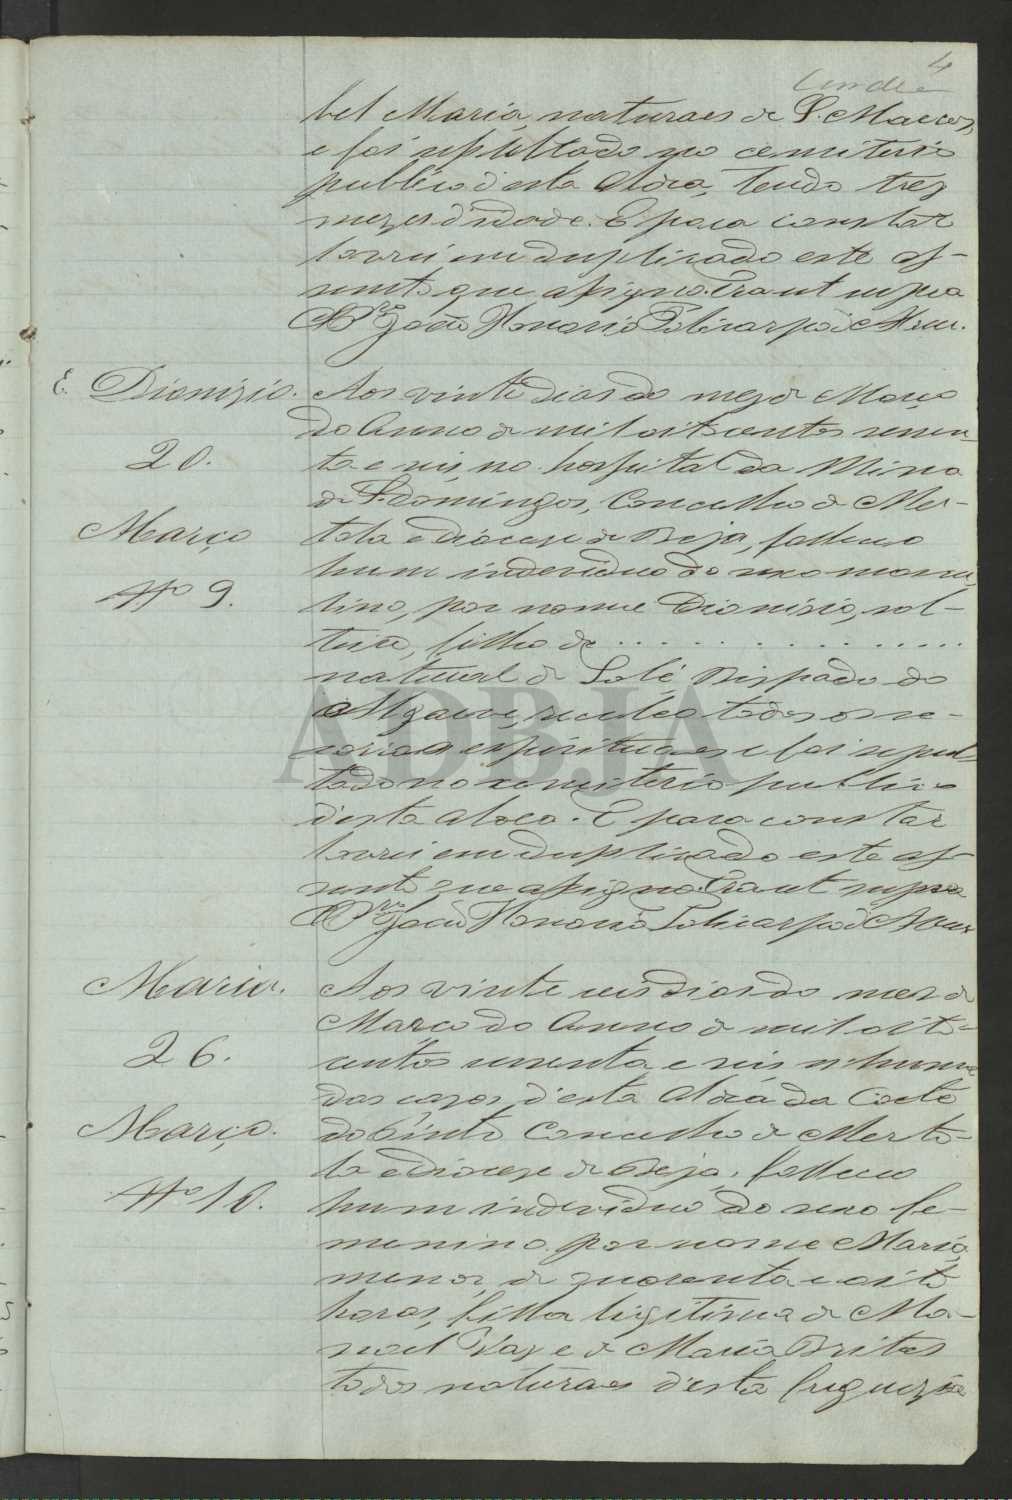 4
bel Maria, naturaes de S. Marcos,
e foi sepultado no cemiterio
publico d'esta Aldea, tendo trez
mezes d'idade. E para constar
lavrei em duplicado este as-
sento que assigno. Era ut supra
O P.e João Honorio Policarpo d'
E. Dionizio. Aos vinte dias do mez de Março
do Anno de mil oitocentos seten-
20.
ta e seis, no hospital da Mina
de S. Domingos, Concelho de Mer-
Março
tola e Diocese de Beja, falleceu
hum individuo do sexo mascu-
Nº 9.
lino, por nome Dionisio, sol-
teiro, filho de . . . . . . . . . . . .
natural de Solé Bispado do
Algarve, recebeo todos os so-
corros espirituaes e foi sepul-
tado no cemiterio publico
d'esta aldea. E para constar
lavrei em duplicado este as-
sento que assigno. Era ut supra
O P.e João Honorio Policarpo d'
Maria.
Aos vinte seis dias do mes de
Março do Anno de mil oito-
26.
centos setenta e seis n'huma
das casas d'esta Aldea da Corte
Março.
do Pinto Concelho de Merto-
la e Diocese de Beja, falleceu
Nº 10.
hum individuo do sexo fe-
menino por nome Maria,
menor, de quarenta e oito
horas, filha legitima de Ma-
noel Vaz e de Maria Brites
todos naturaes d'esta freguezia
ADBJA